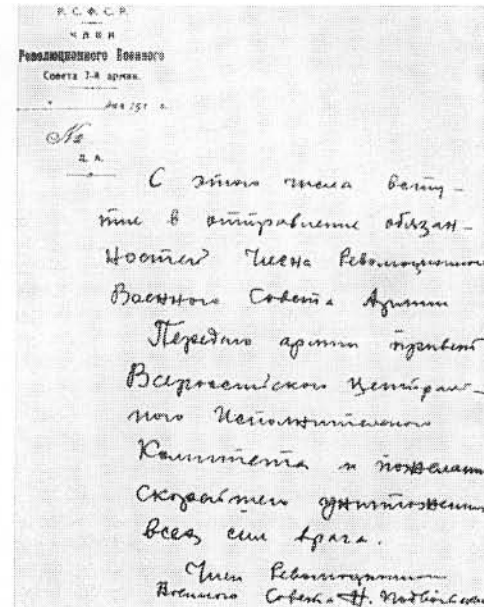 Р. С. Ф. С. Р.
ЧЛЕН
Революционного Военного
Совета 7-й армии.
№
С этого числа всту-
пил в отправление обязан-
ностей Члена Революционного
Военного Совета Армии
Передаю армии привет
Всероссийского Централь-
ного Исполнительного
Комитета и пожелания
скорейшего уничтожения
всех сил врага.
Член Революционного
Военного Совета Н. Подвойский